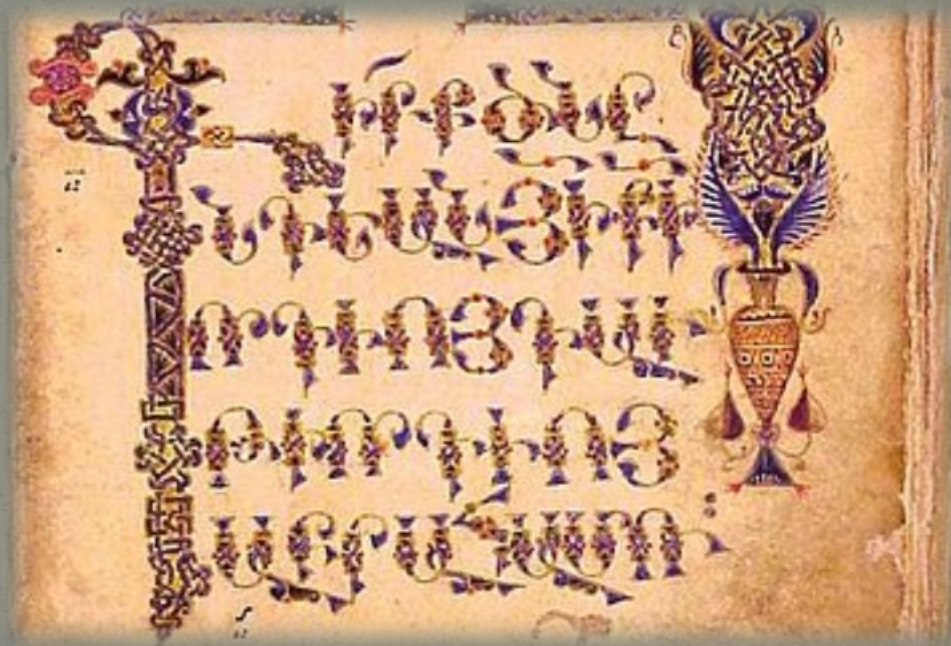 ԳԻՐՔ ԾՆԸ
ՆԴԵԱՆ ՅԻ ՔԻ
ՈՐԴԻՈՅ ԴԱՒ
ԹԻ ՈՐԴԻՈՅ
ԱԲՐԱՀԱՄՈՒ